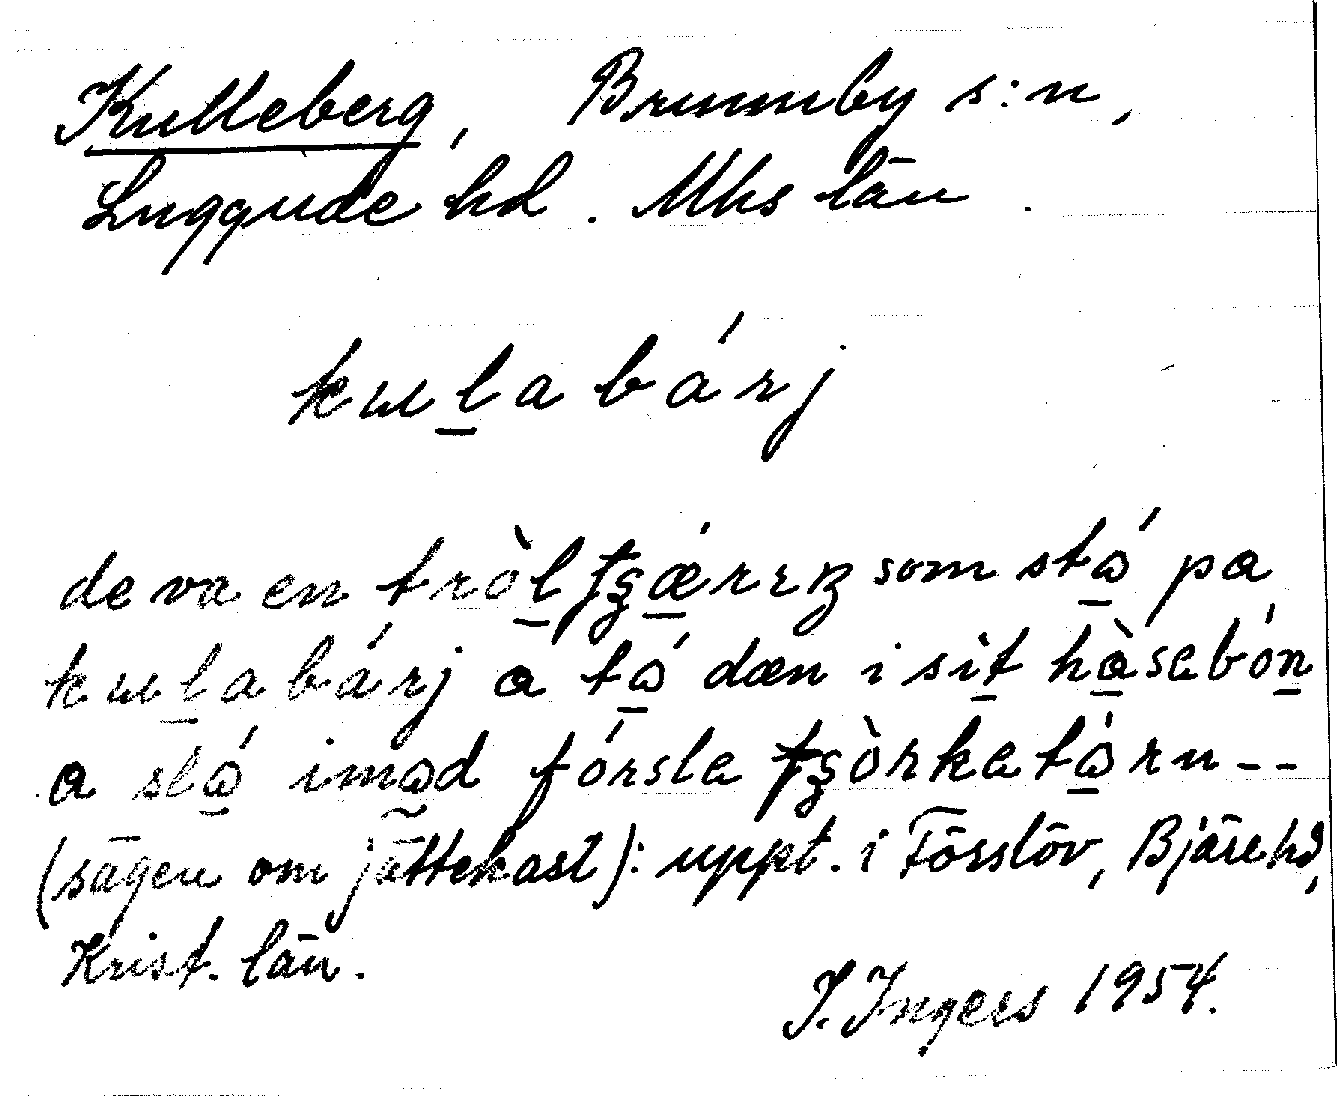 Kulleberg, Brunnby s:n,
Luggude hd. Mhs län.
kul̲abárj
de va en tròl̲ʈʂǽ̲rrıŋ som stá̲ pa
kul̲abárj a tá̲ dæn i sìt̲ hà̲sebón̲
a slá̲ ima̲d fórsla ʈʂòrkatá̲rn--
(sägen om jättekast): uppt. i Förslöv, Bjäre hd,
Krist. län.
I. Ingers 1954.